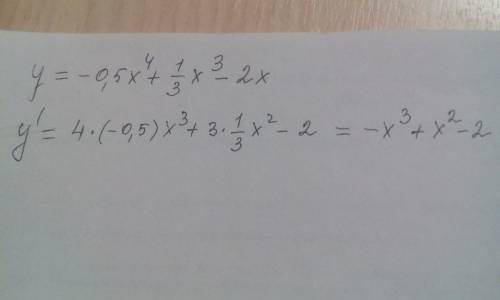 y = -0,5x⁴ + 1/3 x³ - 2x
y' = 4·(-0,5)x³ + 3·1/3 x² - 2 = -x³ + x² - 2